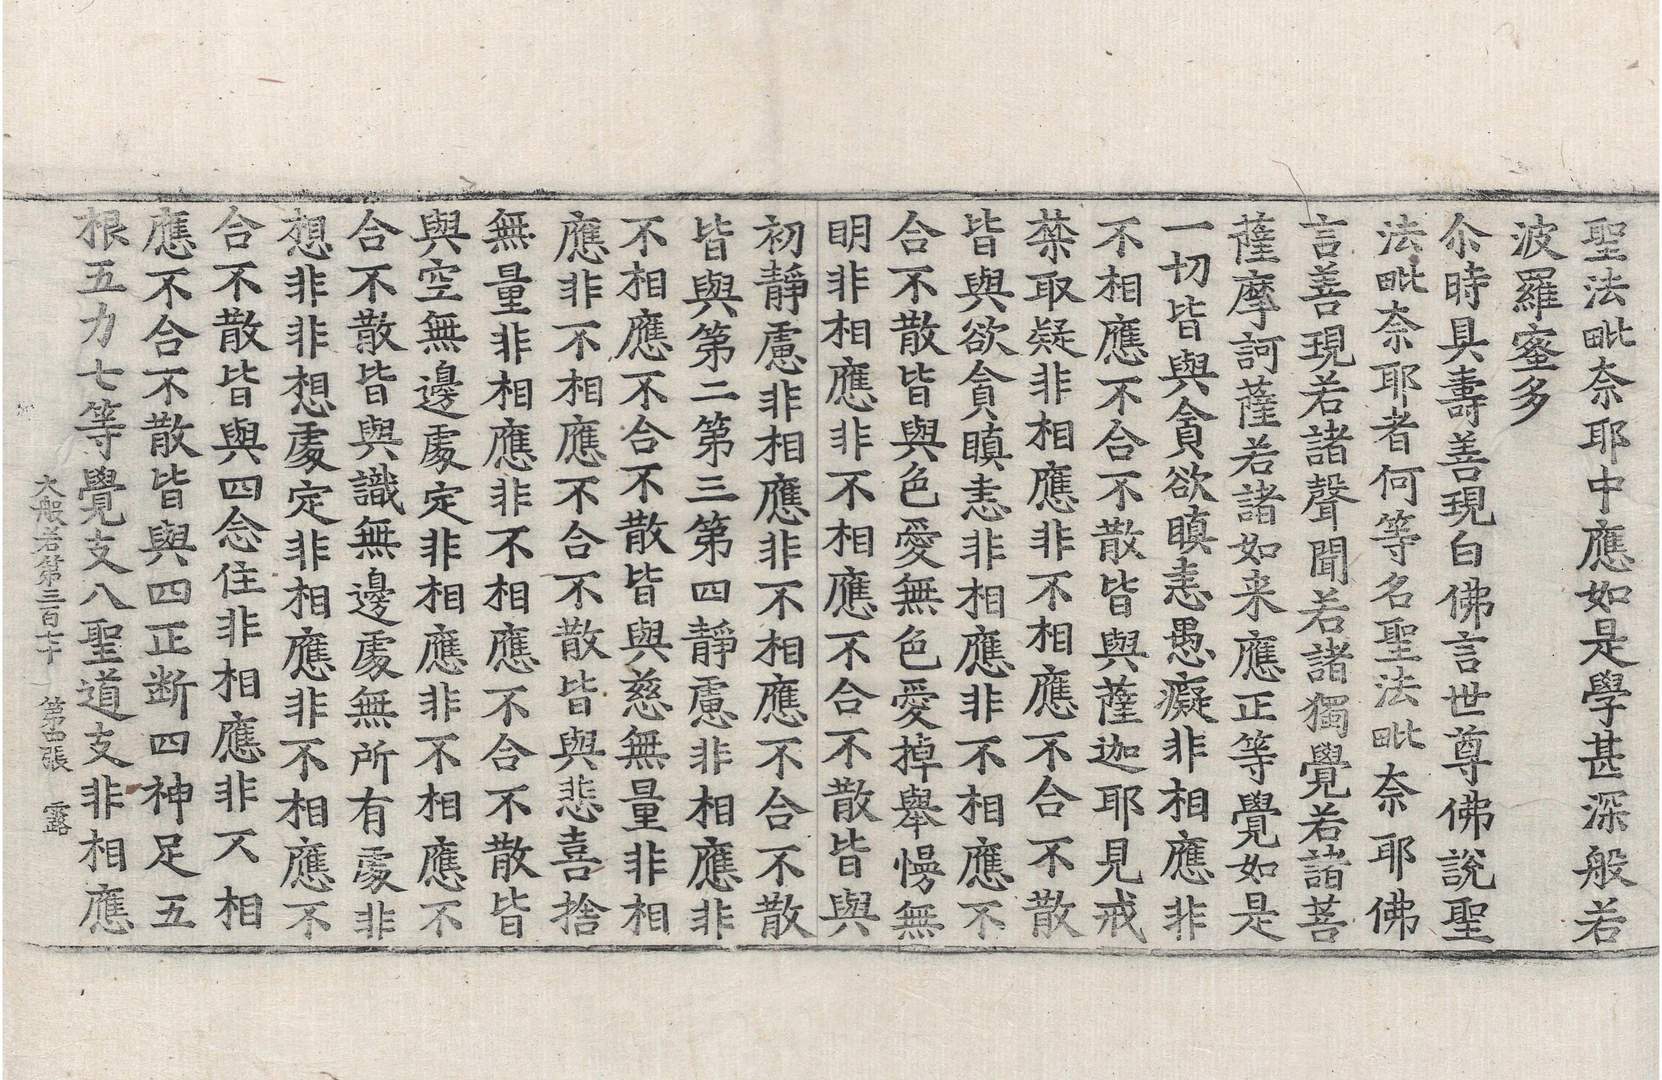 聖法毗奈耶中應如是學甚深般若
波羅蜜多
尒時具壽善現白佛言世尊佛說聖
法毗奈耶者何等名聖法毗奈耶佛
言善現若諸聲聞若諸獨覺若諸菩
薩摩訶薩若諸如来應正等覺如是
一切皆與貪欲瞋恚愚癡非相應非
不相應不合不散皆與薩迦耶見戒
禁取疑非相應非不相應不合不散
皆與欲貪瞋恚非相應非不相應不
合不散皆與色愛無色愛掉舉慢無
明非相應非不相應不合不散皆與
初靜慮非相應非不相應不合不散
皆與第二第三第四靜慮非相應非
不相應不合不散皆與慈無量非相
應非不相應不合不散皆與悲喜捨
無量非相應非不相應不合不散皆
與空無邊處定非相應非不相應不
合不散皆與識無邊處無所有處非
想非非想處定非相應非不相應不
合不散皆與四念住非相應非不相
應不合不散皆與四正断四神足五
根五力七等覺支八聖道支非相應
大般若第三百七十 第四張 露